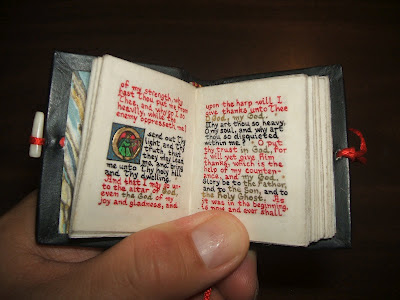 of my strength, why
hast thou put me from
Thee, and why go I so
heavily, while the
enemy oppresseth me?
O send out Thy
light and Thy
truth, that
they may lead
me, and bring
me unto Thy holy hill
and Thy dwelling.
And that I may go un-
to the altar of God,
even the God of my
joy and gladness, and
upon the harp will I
give thanks unto Thee
O God, my God.
Why art thou so heavy,
O my soul, and why art
thou so disquieted
within me? O put
thy trust in God, for
I will yet give Him
thanks, which is the
help of my counten-
ance, and my God.
Glory be to the Father,
and to The Son, and to
the Holy Ghost. As
it was in the beginning,
is now and ever shall